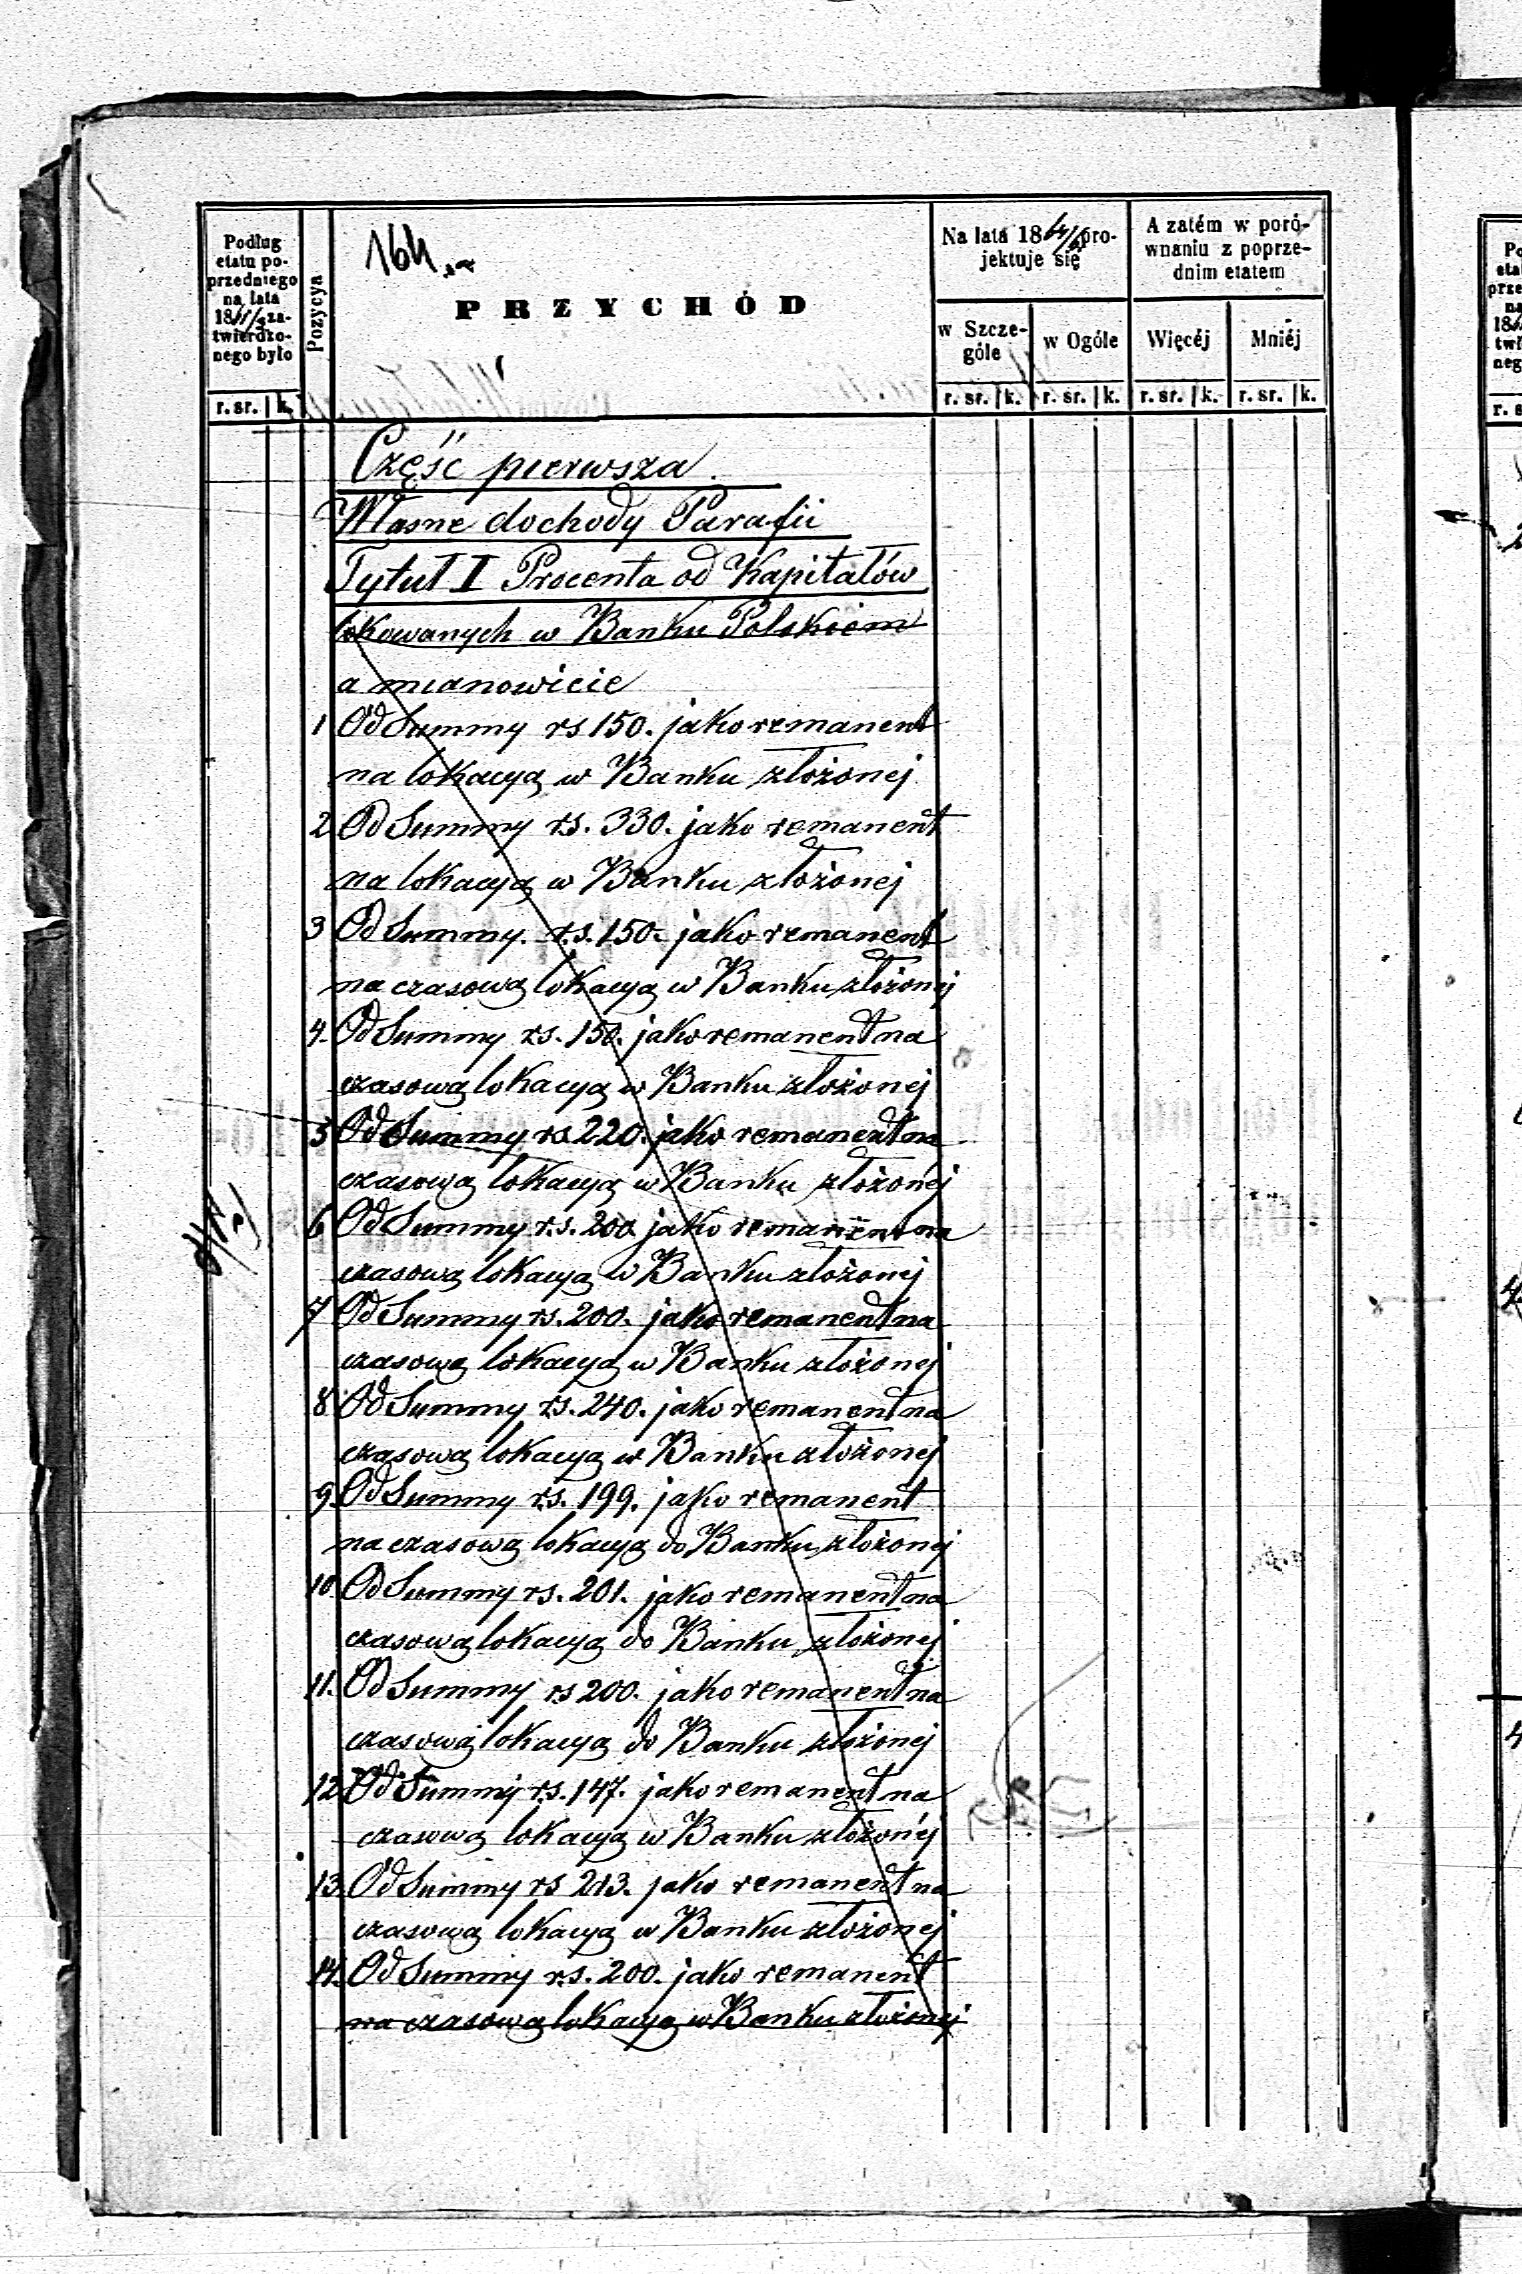 164.
Podług
etatu po-
przedniego
na lata
18 za-
twierdzo-
nego było
r. sr. k.
Pozycya
PRZYCHÓD
Na lata 18 pro-
jektuje się
w Szcze-
góle
w Ogóle
r. sr. k. r. sr. k.
A zatém w poró-
wnaniu z poprze-
dnim etatem
Więcéj Mniéj
r. sr. k. r. sr. k.
Część pierwsza.
Własne dochody Parafii
Tytuł I Procenta od Kapitałów
lokowanych w Banku Polskiem
a mianowicie
1 Od Summy rs 150. jako remanent
na lokacyą w Banku złożonej
2 Od Summy rs. 330. jako remanent
na lokacyą w Banku złożonej
3 Od Summy. r.s. 150. jako remanent
na czasową lokacyą w Banku złożonej
4. Od Summy rs. 150. jako remanent na
czasową lokacyą w Banku złożonej
5 Od Summy rs 220. jako remanent na
czasową lokacyą w Banku złożonej
6 Od Summy r.s. 200 jako remanent na
czasową lokacyą w Banku złożonej
7 Od Summy rs. 200. jako remanent na
czasową lokacyą w Banku złożonej
8 Od Summy rs. 240. jako remanent na
czasową lokacyą w Banku złożonej
9. Od Summy rs. 199. jako remanent
na czasową lokacyą do Banku złożonej
10 Od Summy rs. 201. jako remanent na
czasową lokacyą do Banku złożonej
11. Od Summy rs 200. jako remanent na
czasową lokacyą do Banku złożonej
12 Od Summy r.s. 147. jako remanent na
czasową lokacyą w Banku złożonej
13. Od Summy rs 213. jako remanent na
czasową lokacyą w Banku złożonej
14. Od Summy r.s. 200. jako remanent
na czasową lokacyą w Banku złożonej